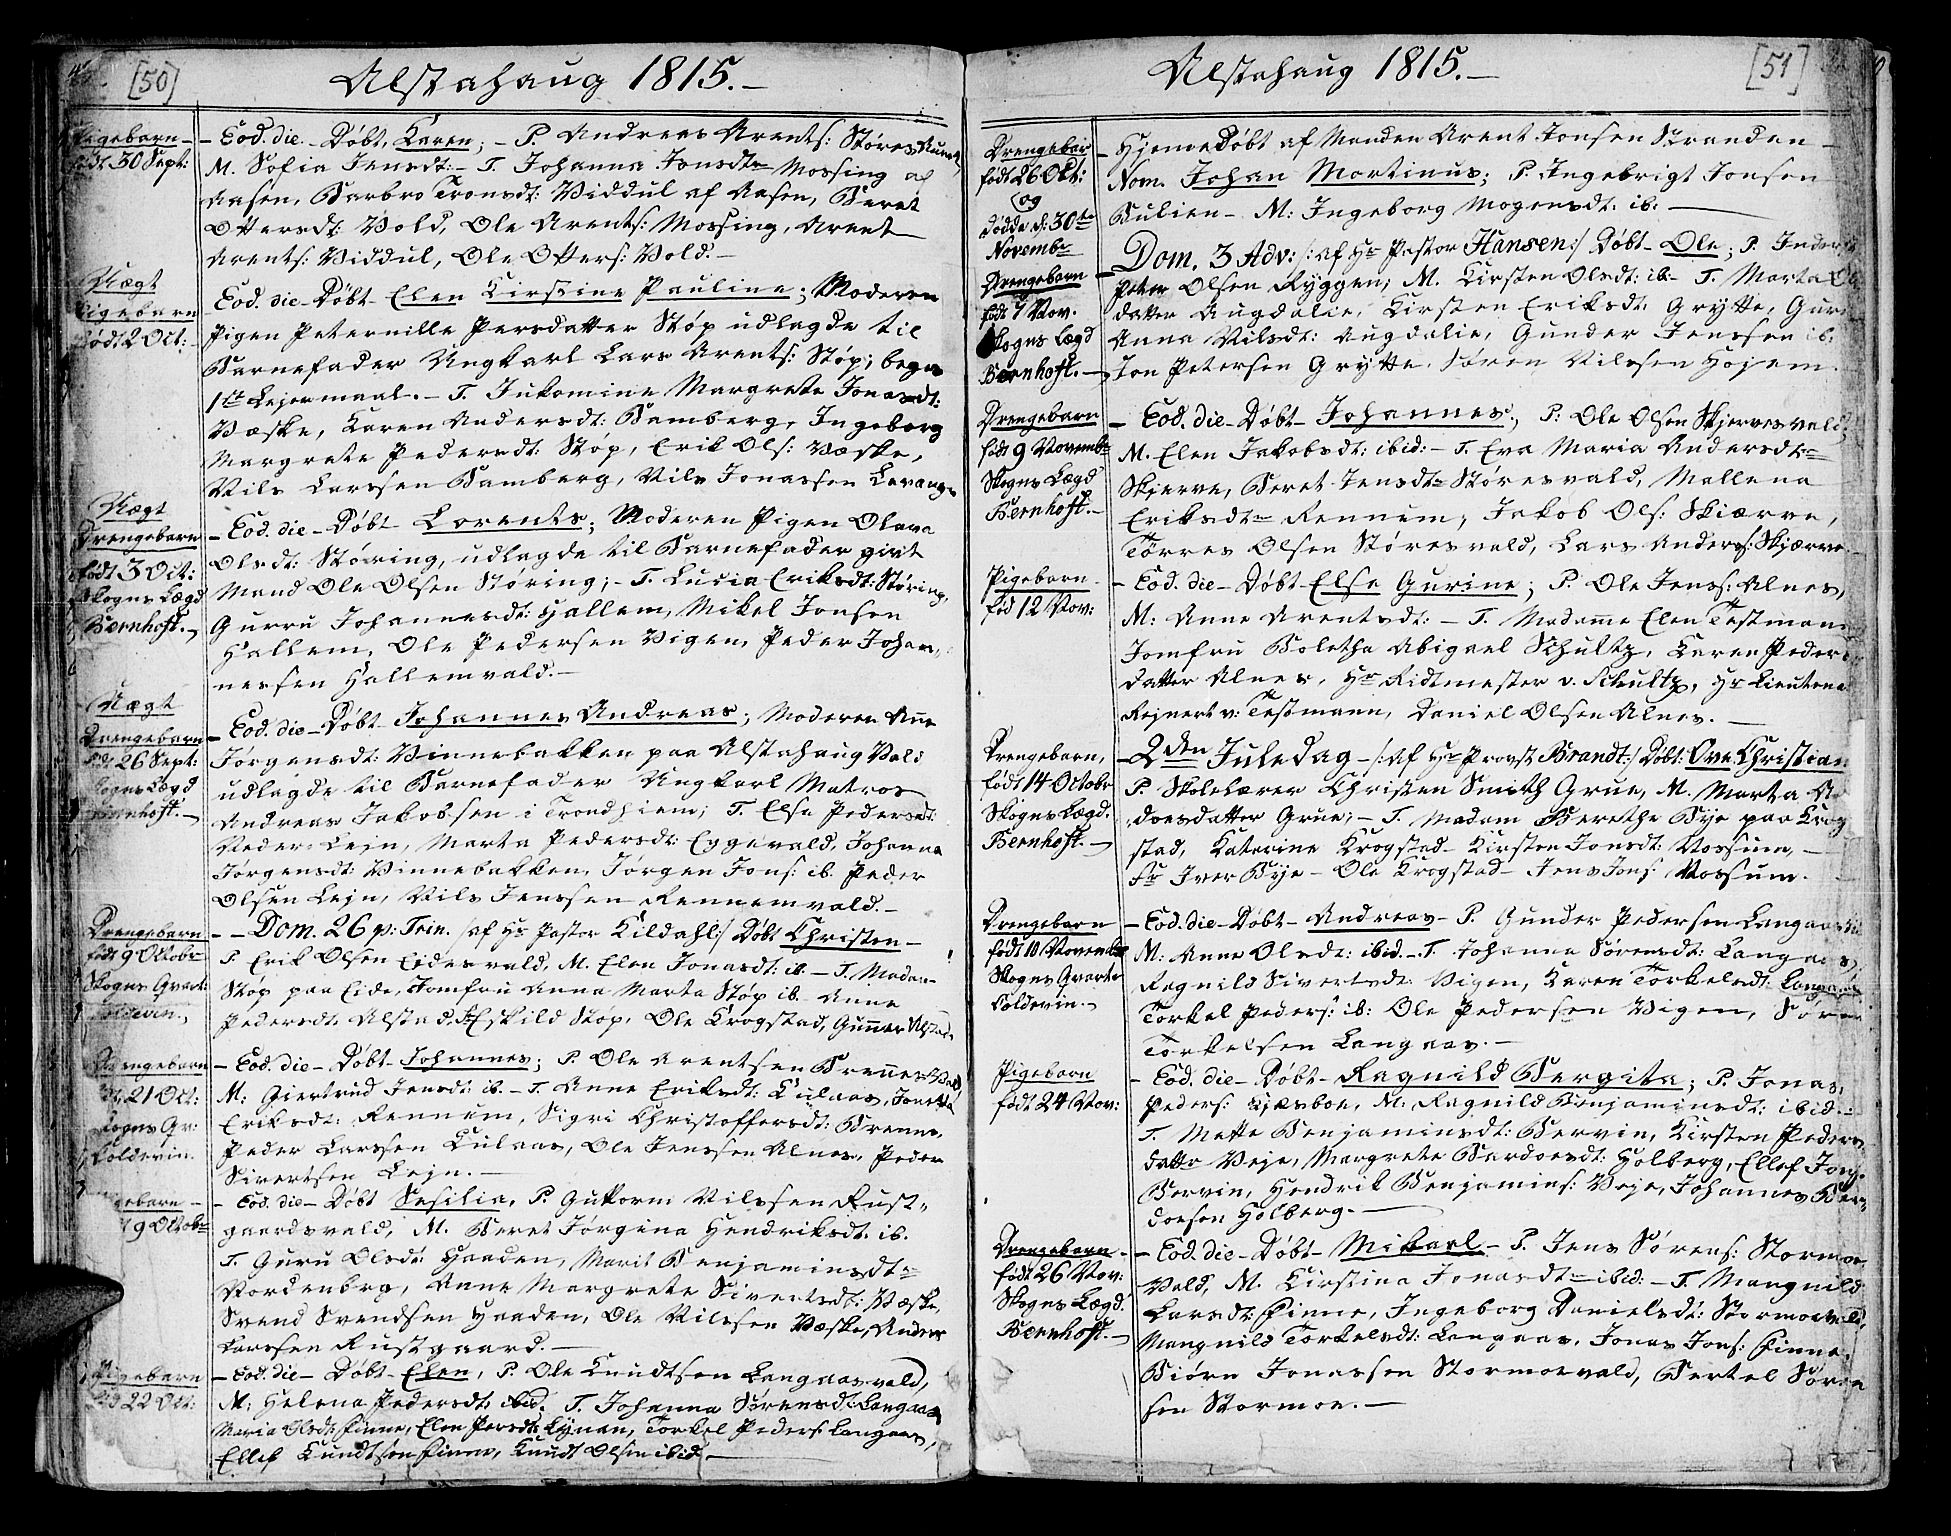 [50]
Alstahaug 1815.-
Pigebarn
født 30 Sept:
- Eod. die - Døbt, Karen; - P. Andreas Arents: Støres
M. Sofia Jensdt: - T. Johanna Jonsdtr Mossing af
Aasen, Barbro Tronsdt: Viddul af Aasen, Beret
Ottersdt: Vold, Ole Arents: Mossing, Arent
Arents: Viddul, Ole Otters: Vold. -
Uægt
Pigebarn
født 2 Oct: -
Eod. die - Døbt - Elen Kirstine Pauline; Moderen
Pigen Peternille Persdatter Støp udlagde til
Barnefader Ungkarl Lars Arents: Støp; begges
1te Lejermaal. - T. Inkomine Margrete Jonasdt:
Væske, Karen Andersdt: Bamberg, Ingeborg
Margrete Pedersdt: Støp, Erik Ols: Væske,
Nils Larssen Bamberg, Nils Jonassen Levanger
Uægt
Drengebarn
født 3 Oct:
Skogns Lægd
Bernhoft. -
- Eod. die - Døbt Lorents; Moderen Pigen Olava
Olsdt: Støring, udlagde til Barnefader givt
Mand Ole Olsen Støring; - T. Lucia Eriksdt: Støring,
Gurru Johannesdt: Hallem, Mikel Jonsen
Hallem, Ole Pedersen Vigen, Peder Johan,,
nessen Hallemvald. -
Uægt
Drengebarn
født 26 Sept:
Skogns Lægd
Bernhoft. -
- Eod. die - Døbt Johannes Andreas; Moderen Ane
Jørgensdt: Vinnebakken paa Alstahaug Vald
udlagde til Barnefader Ungkarl Matros
Andreas Jakobsen i Trondhiem; T. Else Pedersdt:
Neder Lejn, Marta Pedersdt: Eggevald, Johanna
Jørgensdt: Vinnebakken, Jørgen Jons: ib. Peder
Olsen Lejn, Nils Jenssen Rennemvald. -
Drengebarn
født 9 Oktobr
Skogns Qvart:
Coldevin. -
- - Dom. 26 p: Trin. /: af Hr Pastor Kildahl:/ Døbt Christen -
P. Erik Olsen Eidesvald, M. Elen Jonasdt: ib. - T. Madam
Støp paa Eide, Jomfru Anna Marta Støp ib. Anne
Pedersdt: Alstad, Eskild Støp, Ole Krogstad, Gunner Alstad.
Drengebarn
født 21 Oct:
Skogns Qv:
Coldevin.
- Eod. die - Døbt - Johannes; P. Ole Arentsen Brennes Vald,
M: Giertrud Jensdt: ib. - T. Anne Eriksdt: Kulaas, Jonetta
Eriksdt: Rennem, Sigri Christoffersdt: Brenne,
Peder Larssen Kulaas, Ole Jenssen Alnes, Peder
Sivertsen Lejn. -
Pigebarn -
født 9 Oktobr
- Eod. die - Døbt Sesilia, P. Guttorm Nilssen Rust,,
gaardsvald, M. Beret Jørgina Hendriksdt. ib.
T. Guru Olsdt: Haaden, Marit Benjaminsdtr
Nordenbrg, Anne Margrete Sivertsdt: Væske,
Svend Svendsen Haaden, Ole Nilssen Væske, Anders
Larssen Rustgaard. -
Pigebarn
født 22 Oct:
- Eod. die - Døbt - Elen, P. Ole Knudtsen Langaasvald,
M: Helena Pedersdt: ibid. T. Johanna Sørensdt: Langaas
Maria Olsdt: Finne, Elen Persdt: Lynan, Torkel Peders: Langaas,
Ellef Knudtsen Finne, Knudt Olsen ibid. -
[51]
Alstahaug 1815. -
Drengebar
født 26 Okt:
og
døde d: 30te
Novembr
- Hjemedøbt af Manden Arent Jonsen Stranden -
Nom. Johan Mortinus; P. Ingebrigt Jonsen
Bulien - M: Ingeborg Mogensdt: ib. -
Drengebarn
født 7 Nov.
Skogns Lægd
Bernhoft. -
- Dom. 3 Adv: /: af Hr Pastor Hansen:/ Døbt - Ole; P.
Peter Olsen Ryggen; M. Kirsten Olsdt: ib. - T. Marta
datter Augdalie, Kirsten Eriksdt: Grytte, Guru
Anna Nilsdt: Augdalie, Gunder Jenssen ib.
Jon Petersen Grytte, Søren Nilssen Hojem.
Drengebarn
født 9 Novembr
Skogns Lægd
Bernhoft. -
- Eod. die - Døbt - Johannes; P: Ole Olsen Skjervesvald,
M. Elen Jakobsdt: ibid: - T. Eva Maria Andersdtr
Skjerve, Beret Jensdtr Størsvald, Mallena
Eriksdtr Rennem, Jakob Ols: Skiærve,
Tørres Olsen Størsvald, Lars Anders: Skjærve.
Pigebarn
fød 12 Nov:
- Eod. die - Døbt - Else Gurine; P. Ole Jens: Alnes,
M: Anne Arentsdt: - T. Madame Elen Testmann
Jomfru Boletha Abigael Schultz, Karen Peders
datter Alnes, Hr Ridtmester v. Schultz, Hr Lieutena
Rejnert v: Testmann, Daniel Olsen Alnes. -
Drengebarn,
født 14 Octobr
Skogns Lægd.
Bernhoft. -
- 2den Juledag - /: af Hr Provst Brandt:/ Døbt: Ove Christian
P. Skolelærer Christen Smith Grue, M. Marta
doesdatter Grue; - T. Madam Berethe Bye paa Krog
stad, Katerine Krogstad - Kirsten Jonsdt: Vossum, -
Sr Iver Bye - Ole Krogstad - Jens Jons: Vossum. -
Drengebarn
født 10 November
Skogns Qvarter
Coldevin. -
- Eod. die - Døbt - Andreas - P. Gunder Pedersen Langaas
M: Anne Olsdt: ibid. - T. Johanna Sørensdt: Langaas,
Ragnild Sivertsdt: Vigen, Karen Torkelsdt: Langaas
Torkel Peders: ib: Ole Pedersen Vigen, Søren
Torkelsen Langaas. -
Pigebarn
født 24 Nov:
- Eod. die - Døbt - Ragnild Bergita; P. Jonas
Peders: Kjæsboe, M: Ragnild Benjaminsdt: ibid. -
T. Mette Benjaminsdt: Bervin, Kirsten Peders
datter Veje, Margrete Bardoesdt: Holberg, Ellef Jons:
Bervin, Hendrik Benjamins: Veje, Johannes Bar,,
doesen Holberg. -
Drengebarn -
født 26 Nov:
Skogns Lægd.
Bernhoft. -
- Eod. die - Døbt - Mikael - P. Jens Sørens: Stormoe
Vald, M. Kirstina Jonasdtr ibid: - T. Mangnild
Larsdt: Finne, Ingeborg Danielsdt: Stormoevald,
Mangnild Torkelsdt: Langaas, Jonas Jons: Finne,
Biørn Jonassen Stormoevald, Bertel Søren
sen Stormoe. -